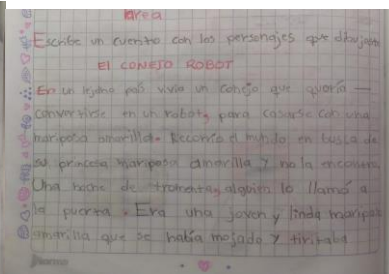 tarea
Escribe un cuento con los personajes que dibujaste
El CONEJO ROBOT
En un lejano país vivía un conejo que quería
convertirse en un robot, para casarse con una
mariposa amarilla. Recorrió el mundo en busca de
su princesa mariposa amarilla y no la encontró.
Una noche de tromenta, alguien lo llamó a
la puerta. Era una joven y linda maripos
amarilla que se había mojado y tiritaba